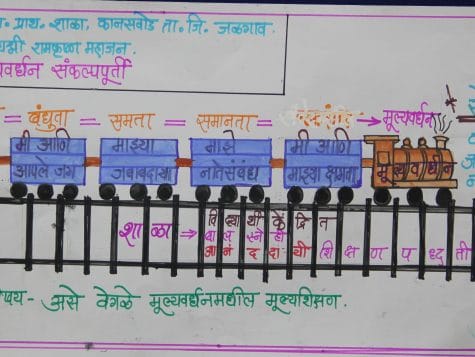 प्राथ. शाळा, कानसवाडे ता. जि. जळगाव.
रामकृष्ण महाजन.
वर्धन संकल्पपूर्ती
= बंधुता = समता = समानता = → मूल्यवर्धन
मी आणि आपले जग
माझ्या जबाबदाऱ्या
माझे नातेसंबंध
मी आणि माझ्या क्षमता
मूल्यवर्धन
शाळा → विद्यार्थी केंद्रित
बाल स्नेही
आनंददायी शिक्षण पध्दती
विषय - असे वेगळे मूल्यवर्धनमधील मूल्यशिक्षण.